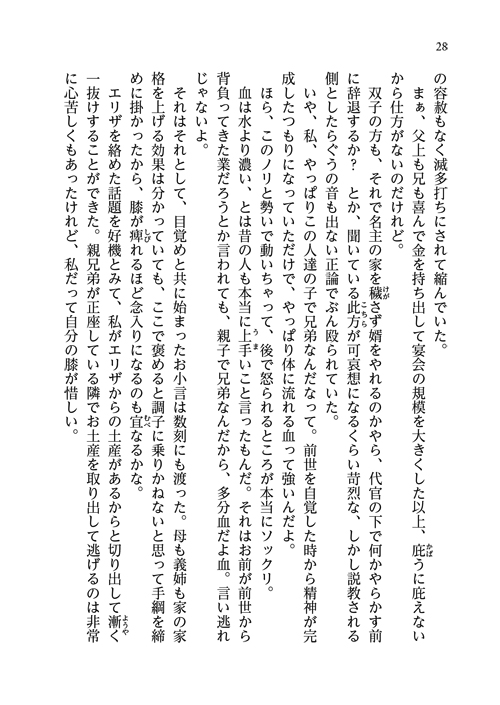 28
の容赦もなく滅多打ちにされて縮んでいた。
　まぁ、父上も兄も喜んで金を持ち出して宴会の規模を大きくした以上、庇うに庇えない
から仕方がないのだけれど。
　双子の方も、それで名主の家を穢さず婿をやれるのかやら、代官の下で何かやらかす前
に辞退するか？　とか、聞いている此方が可哀想になるくらい苛烈な、しかし説教される
側としたらぐうの音も出ない正論でぶん殴られていた。
　いや、私、やっぱりこの人達の子で兄弟なんだなって。前世を自覚した時から精神が完
成したつもりになっていただけで、やっぱり体に流れる血って強いんだよ。
　ほら、このノリと勢いで動いちゃって、後で怒られるところが本当にソックリ。
　血は水より濃い、とは昔の人も本当に上手いこと言ったもんだ。それはお前が前世から
背負ってきた業だろうとか言われても、親子で兄弟なんだから、多分血だよ血。言い逃れ
じゃないよ。
　それはそれとして、目覚めと共に始まったお小言は数刻にも渡った。母も義姉も家の家
格を上げる効果は分かっていても、ここで褒めると調子に乗りかねないと思って手綱を締
めに掛かったから、膝が痺れるほど念入りになるのも宜なるかな。
　エリザを絡めた話題を好機とみて、私がエリザからの土産があるからと切り出して漸く
一抜けすることができた。親兄弟が正座している隣でお土産を取り出して逃げるのは非常
に心苦しくもあったけれど、私だって自分の膝が惜しい。